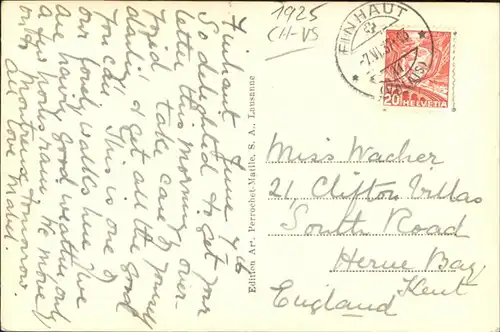 1925
CH-VS
FINHAUT
(VALAIS)
20 HELVETIA
Finhaut June 7th
So delighted to get your
letter this morning
Take care of yourself
& get all the good
you can. This is one of
our family walks here. We
are having good weather only
a few hours rain. We move
on to Montreux tomorrow
All love Mabel.
Edition Art. Perrochet-Matile, S. A., Lausanne
Miss Wacher
21, Clifton Villas
South Road
Herne Bay
Kent
England